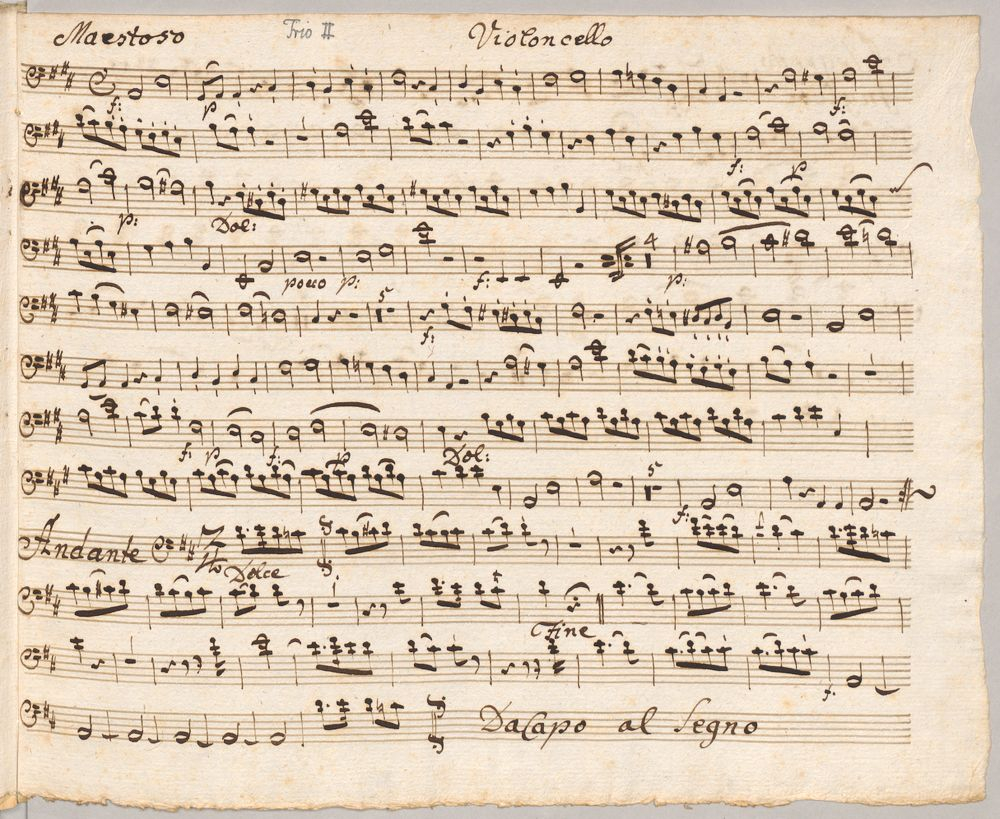 Maestoso Trio II Violoncello
f: p f:
f: p
p: Dol:
4
poco p: f: p:
5
f:
f: p f: p Dol:
5
f:
Andante 2/4 Dolce
Fine
f.
DaCapo al Segno